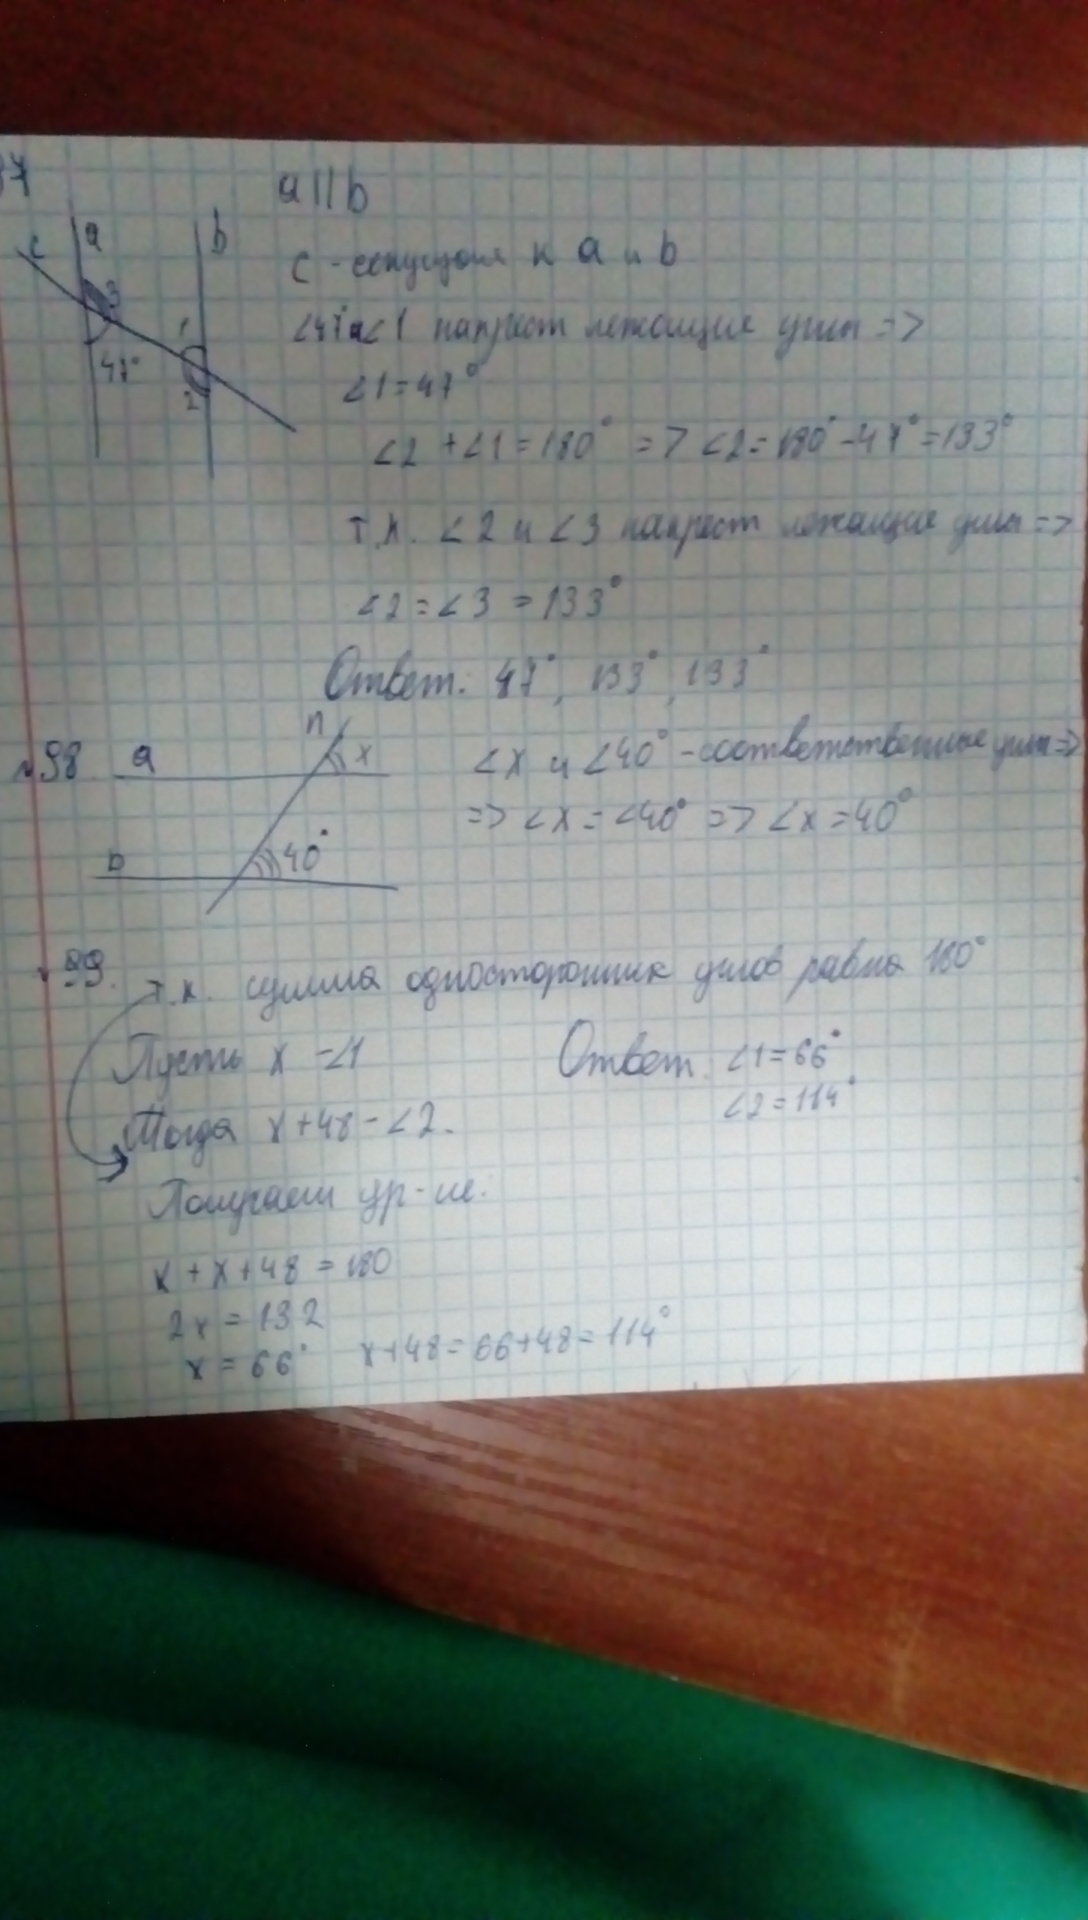 97
a || b
c a b
c - секущая к a и b
3
∠47° и ∠1 накрест лежащие углы =>
1
47°
∠1 = 47°
2
∠2 + ∠1 = 180° => ∠2 = 180° - 47° = 133°
т.к. ∠2 и ∠3 накрест лежащие углы =>
∠2 = ∠3 = 133°
Ответ: 47°, 133°, 133°
№98 a n x
∠x и ∠40° - соответственные углы =>
=> ∠x = ∠40° => ∠x = 40°
b 40°
99. т.к. сумма односторонних углов равна 180°
Пусть x - ∠1
Ответ. ∠1 = 66°
∠2 = 114°
Тогда x + 48 - ∠2.
Получаем ур-ие:
x + x + 48 = 180
2x = 132
x = 66° x + 48 = 66 + 48 = 114°